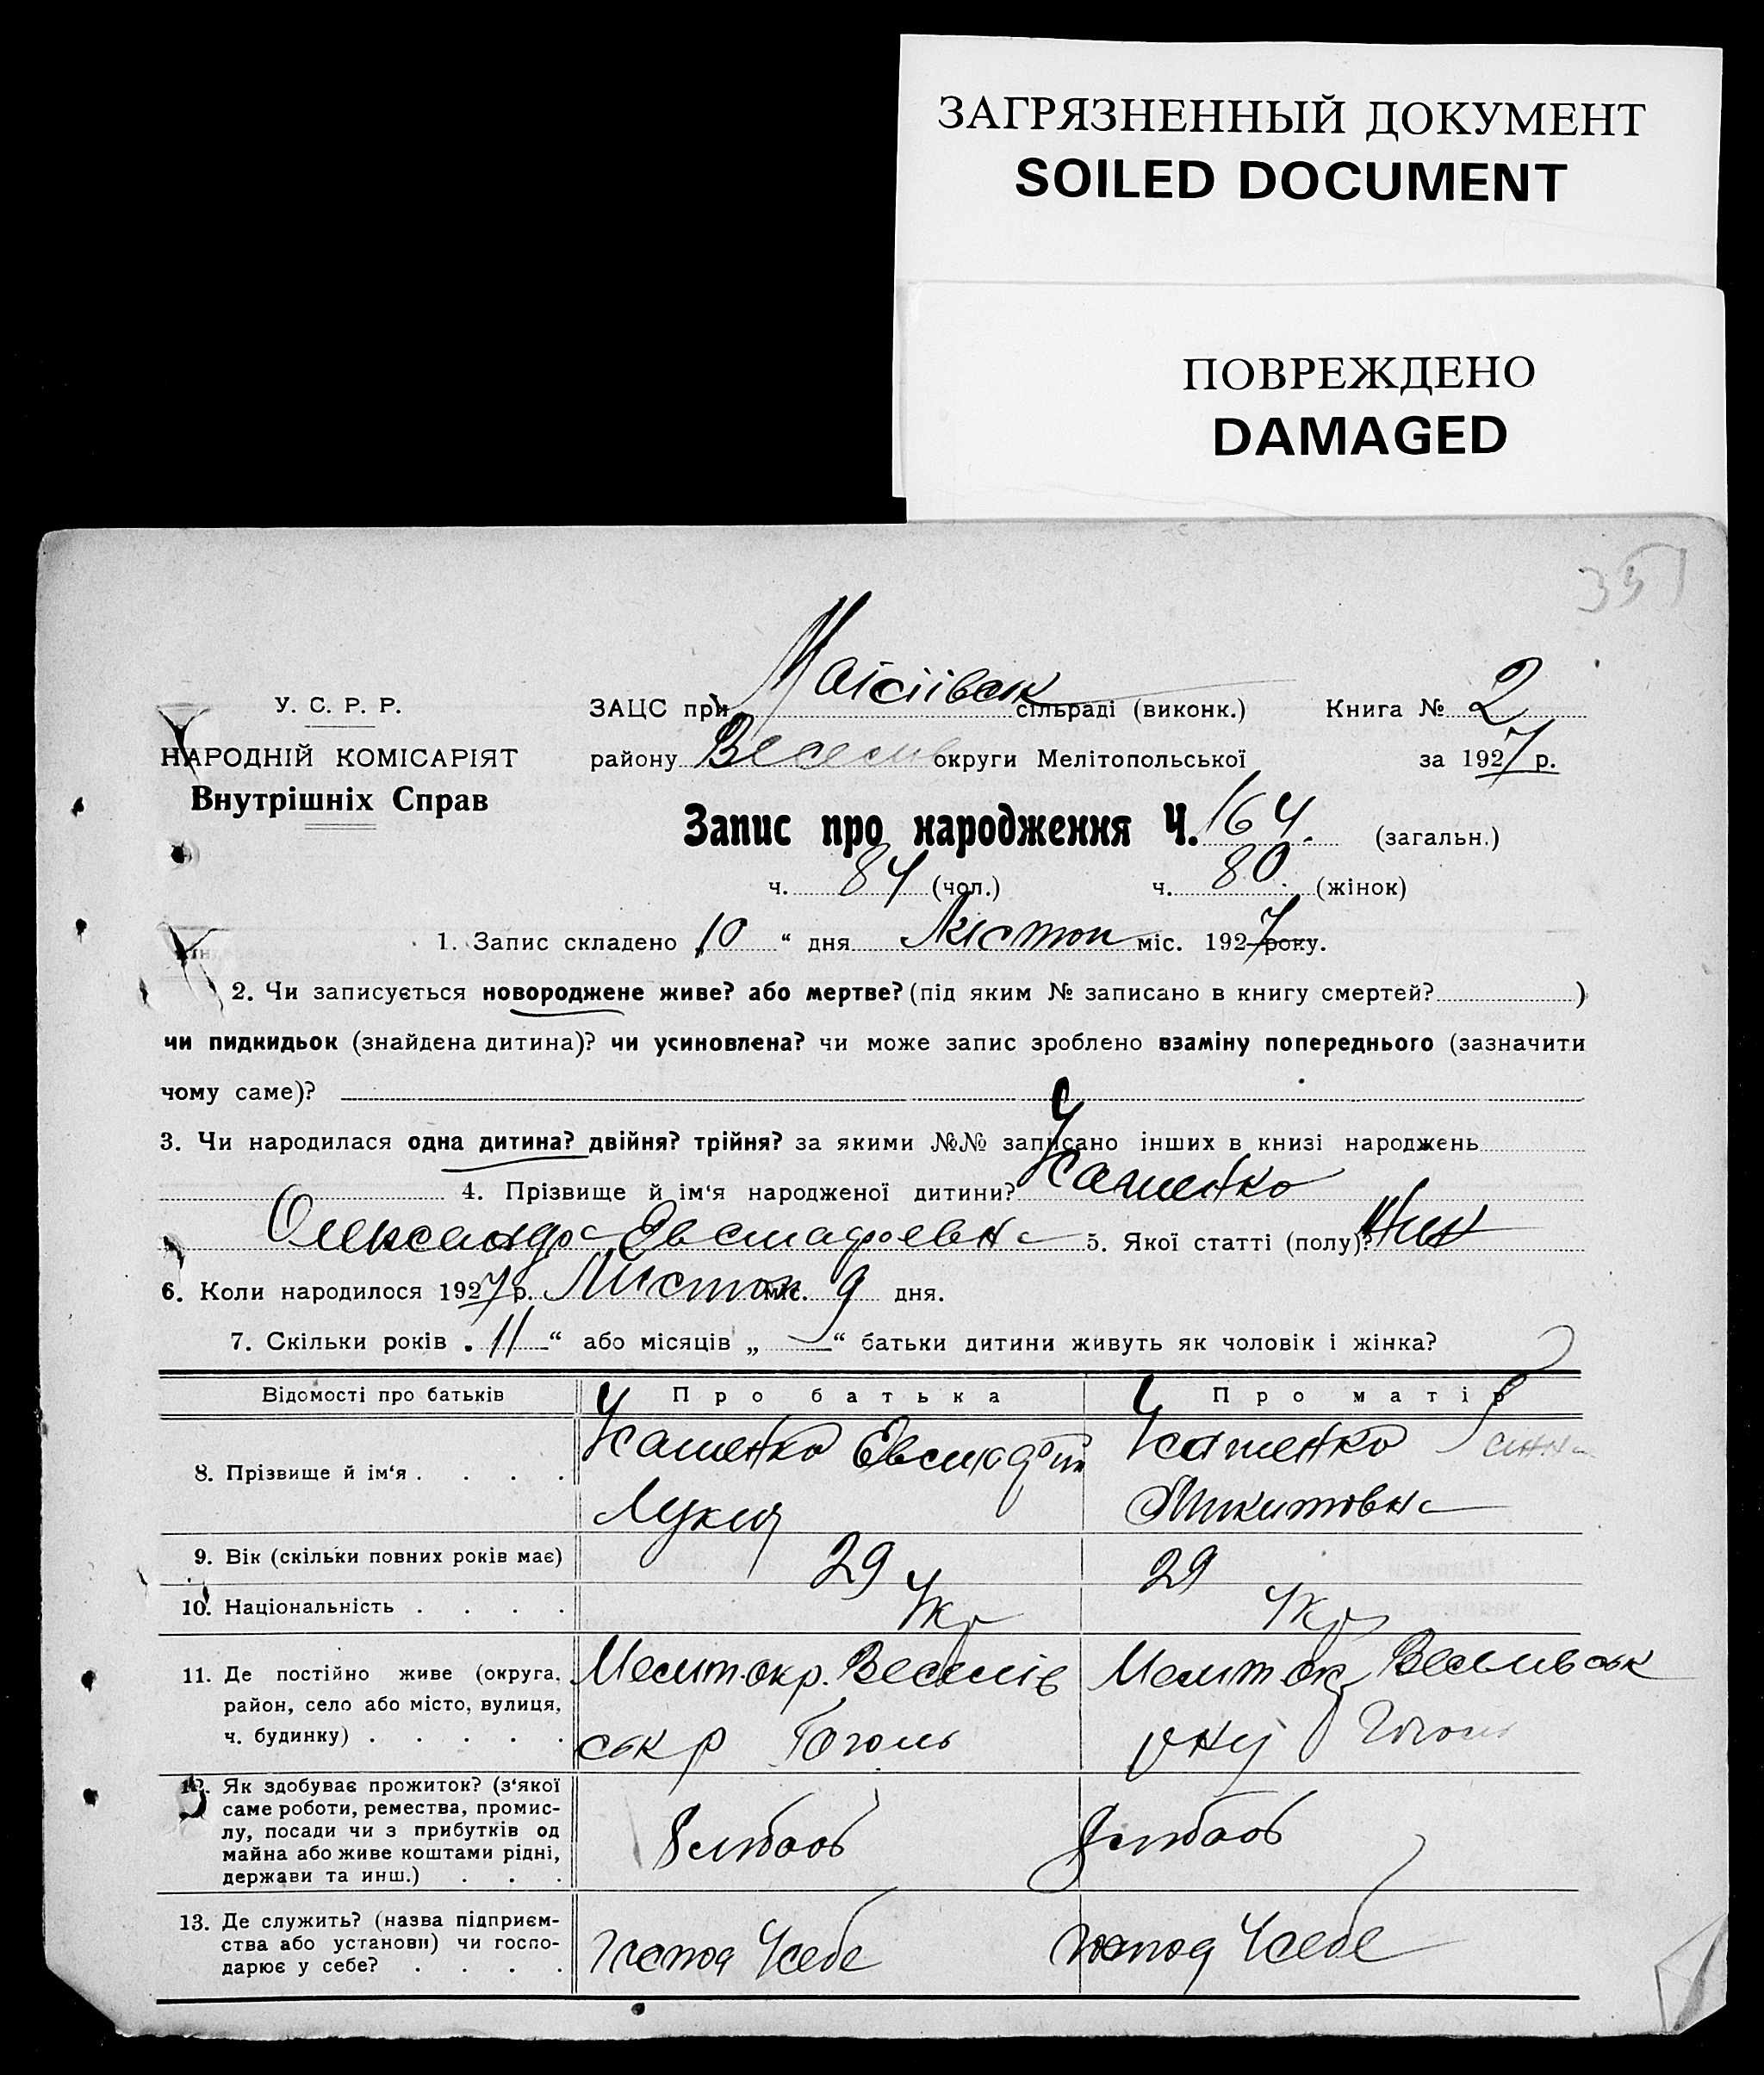 ЗАГРЯЗНЕННЫЙ ДОКУМЕНТ
SOILED DOCUMENT
ПОВРЕЖДЕНО
DAMAGED
351
У. С. Р. Р.
НАРОДНІЙ КОМІСАРІЯТ
Внутрішніх Справ
ЗАЦС при сільраді (виконк.) Книга № 2
району Веселів округи Мелітопольської за 1927 р.
Запис про народження Ч. 164. (загальн.)
ч. 84 (чол.) ч. 80. (жінок)
1. Запис складено „10“ дня Лістоп міс. 1927 року.
2. Чи записується новороджене живе? або мертве? (під яким № записано в книгу смертей? )
чи пидкидьок (знайдена дитина)? чи усиновлена? чи може запис зроблено взаміну попереднього (зазначити
чому саме)?
3. Чи народилася одна дитина? двійня? трійня? за якими №№ записано інших в книзі народжень
4. Прізвище й ім‘я народженої дитини? Усатенко
Олександра Евстафоевна 5. Якої статті (полу)? Жін
6. Коли народилося 1927 р. Листоп міс. 9 дня.
7. Скільки років „11“ або місяців „ — “ батьки дитини живуть як чоловік і жінка?
Відомості про батьків Про батька Про матір
8. Прізвище й ім‘я . . . . Усатенко Евстафій Усатенко
Лукич Микитовна
9. Вік (скільки повних років має) 29 29
10. Національність . . . . Укр Укр
11. Де постійно живе (округа, район, село або місто, вулиця, ч. будинку) . . . . . Мелит. окр. Веселів Мелит ок Веселивськ
ськ р Гоголь Гоголь
12. Як здобуває прожиток? (з‘якої
саме роботи, ремества, промис-
лу, посади чи з прибутків од
майна або живе коштами рідні,
держави та инш.) . . . Хлібооб Хлібооб
13. Де служить? (назва підприєм-
ства або установи) чи госпо-
дарює у себе? . . . . Господ Усебе Господ Усебе